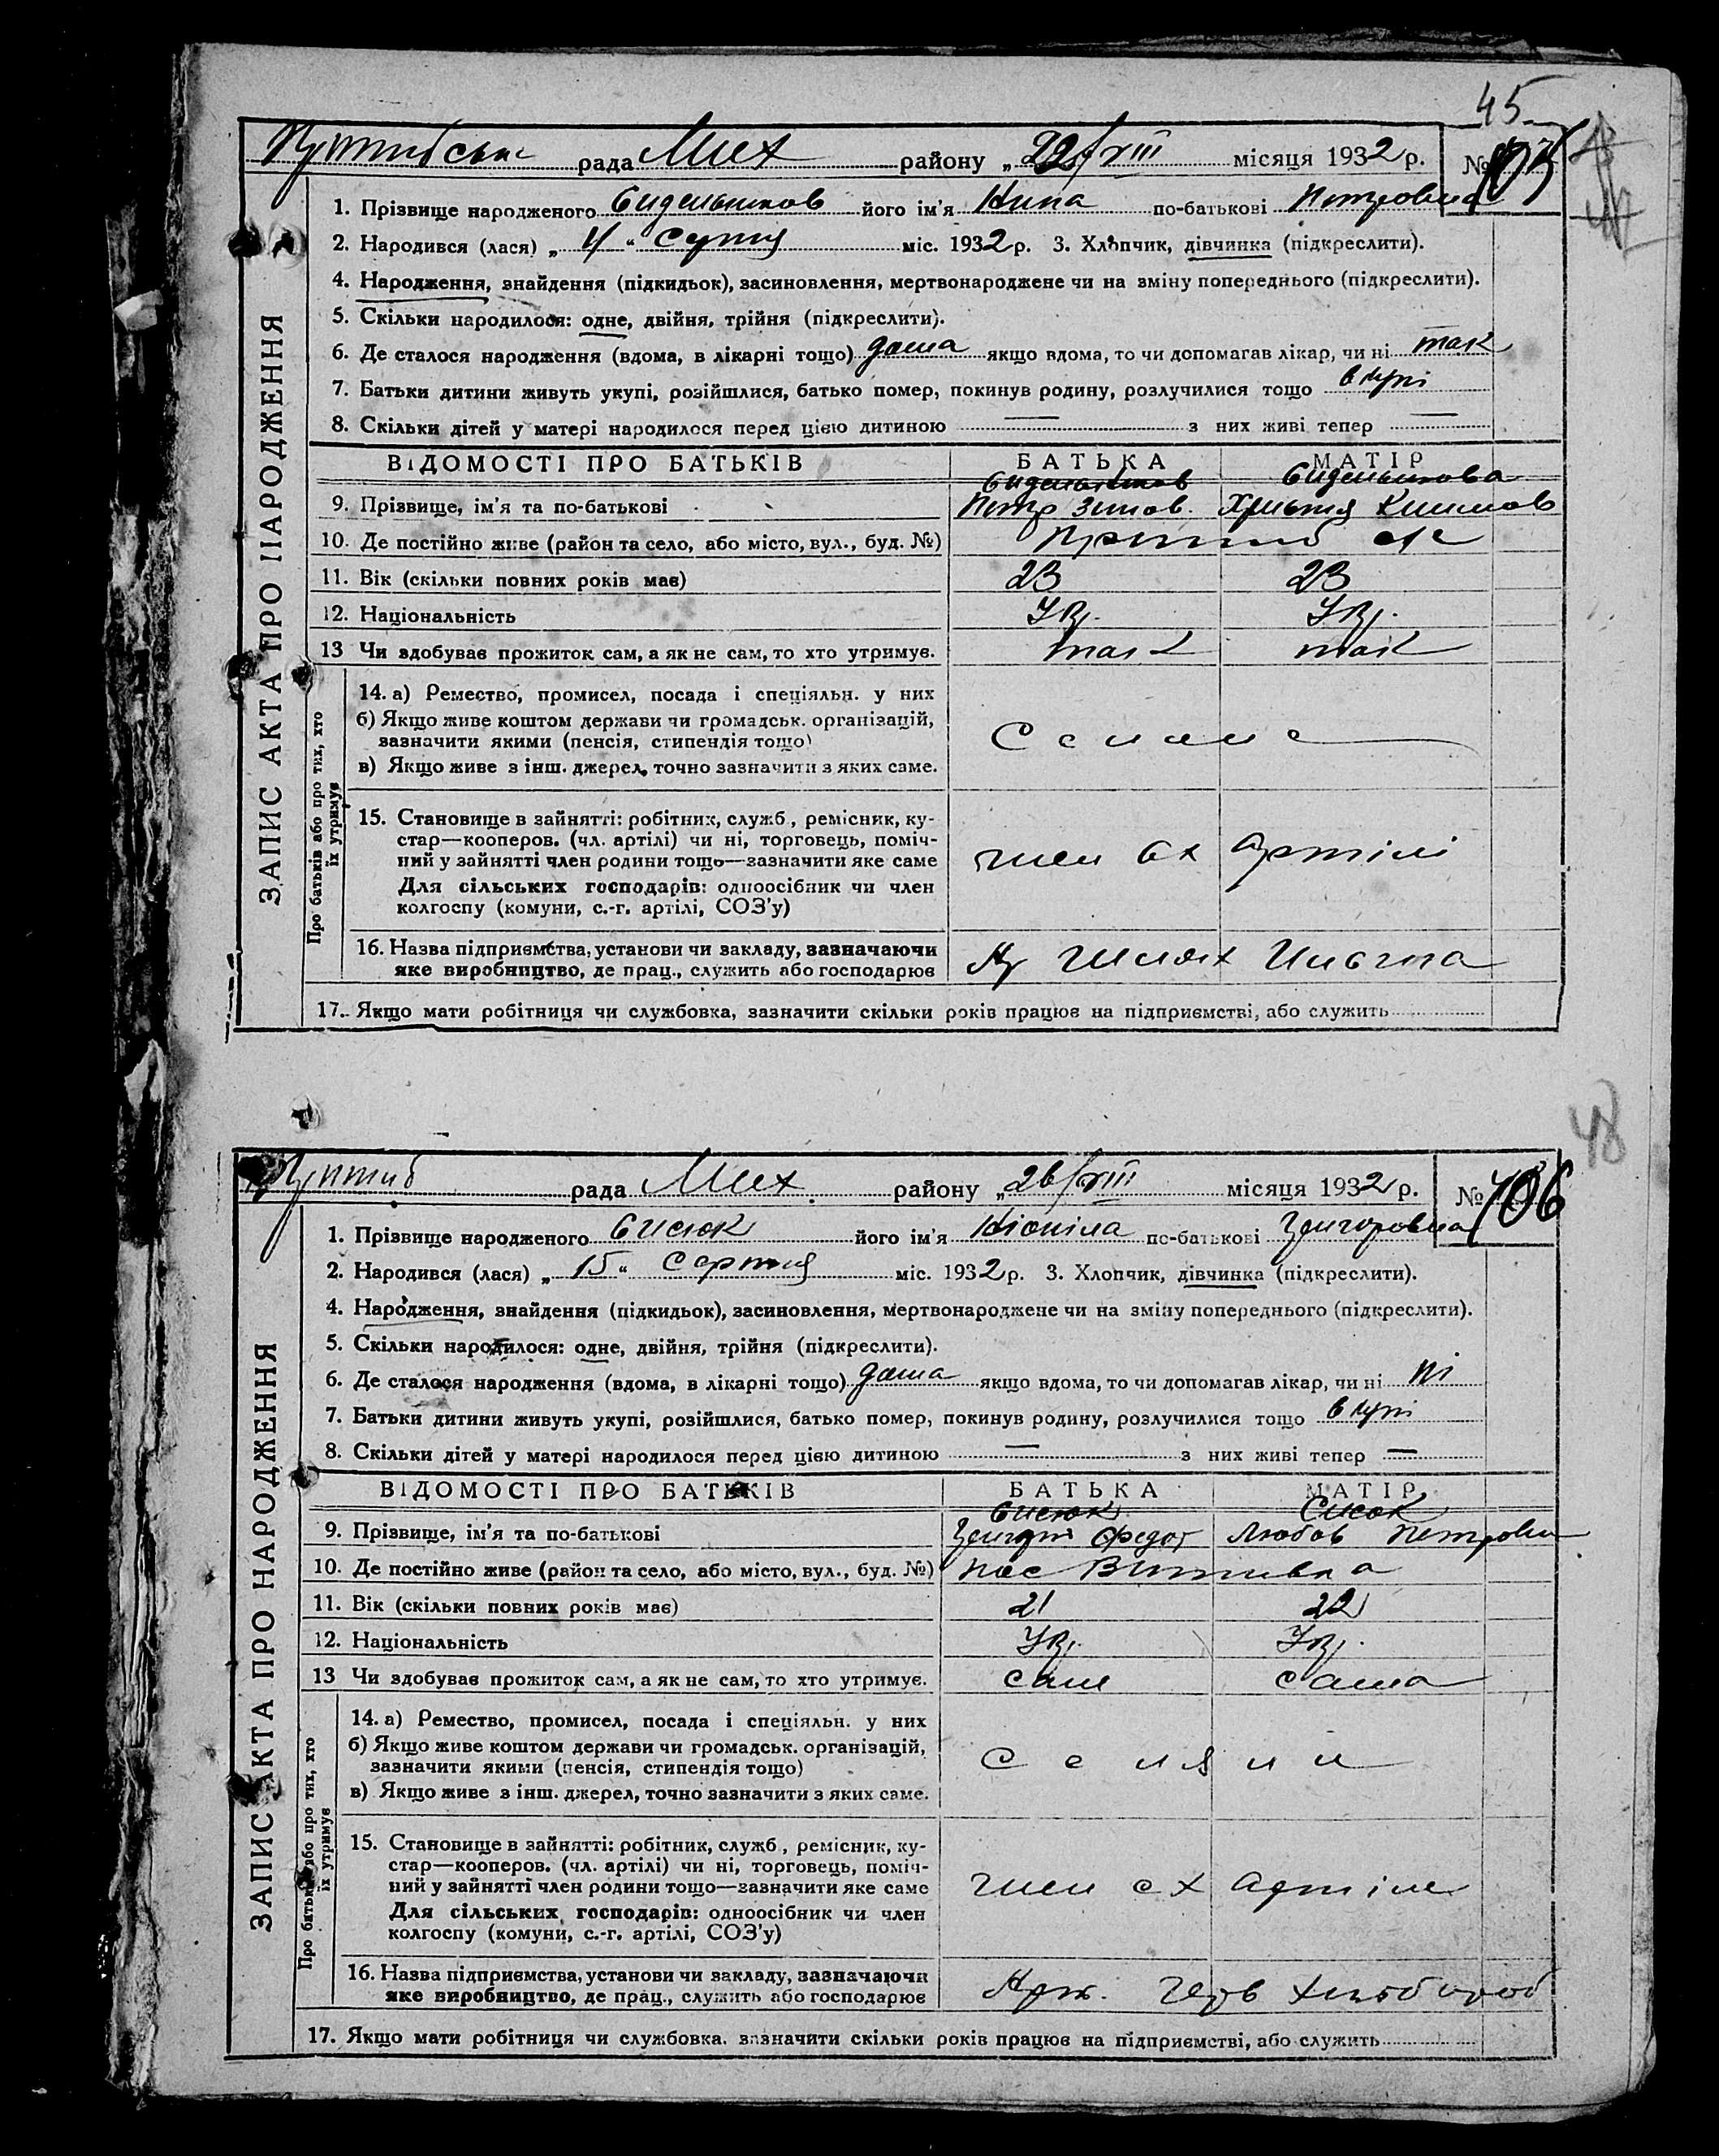 45
рада Мих району „ 22/VIII місяця 1932 р. № 105
ЗАПИС АКТА ПРО НАРОДЖЕННЯ
1. Прізвище народженого його ім'я Нина по-батькові Петровна
2. Народився (лася) „ 4 “ міс. 1932 р. 3. Хлопчик, дівчинка (підкреслити).
4. Народження, знайдення (підкидьок), засиновлення, мертвонароджене чи на зміну попереднього (підкреслити).
5. Скільки народилося: одне, двійня, трійня (підкреслити).
6. Де сталося народження (вдома, в лікарні тощо) дома якщо вдома, то чи допомагав лікар, чи ні так
7. Батьки дитини живуть укупі, розійшлися, батько помер, покинув родину, розлучилися тощо вкупі
8. Скільки дітей у матері народилося перед цією дитиною — з них живі тепер —
ВІДОМОСТІ ПРО БАТЬКІВ БАТЬКА МАТІР
9. Прізвище, ім'я та по-батькові Петр
10. Де постійно живе (район та село, або місто, вул., буд. №)
11. Вік (скільки повних років має) 23 23
12. Національність Укр. Укр.
13 Чи здобуває прожиток сам, а як не сам, то хто утримує. так так
Про батьків або про тих, хто їх утримує
14. а) Ремество, промисел, посада і спеціяльн. у них
б) Якщо живе коштом держави чи громадськ. організацій,
зазначити якими (пенсія, стипендія тощо)
в) Якщо живе з інш. джерел, точно зазначити з яких саме.
15. Становище в зайнятті: робітник, служб., ремісник, ку-
стар—кооперов. (чл. артілі) чи ні, торговець, поміч-
ний у зайнятті член родини тощо—зазначити яке саме член сх артілі
Для сільських господарів: одноосібник чи член
колгоспу (комуни, с.-г. артілі, СОЗ'у)
16. Назва підприємства, установи чи закладу, зазначаючи
яке виробництво, де прац., служить або господарює Шлях Ильича
17. Якщо мати робітниця чи службовка, зазначити скільки років працює на підприємстві, або служить
48
рада Мих. району „ 26/VIII місяця 1932 р. № 106
ЗАПИС АКТА ПРО НАРОДЖЕННЯ
1. Прізвище народженого Сисюк його ім'я Ніоніла по-батькові Григоровна
2. Народився (лася) „ 15 “ Серпня міс. 1932 р. 3. Хлопчик, дівчинка (підкреслити).
4. Народження, знайдення (підкидьок), засиновлення, мертвонароджене чи на зміну попереднього (підкреслити).
5. Скільки народилося: одне, двійня, трійня (підкреслити).
6. Де сталося народження (вдома, в лікарні тощо) дома якщо вдома, то чи допомагав лікар, чи ні ні
7. Батьки дитини живуть укупі, розійшлися, батько помер, покинув родину, розлучилися тощо вкупі
8. Скільки дітей у матері народилося перед цією дитиною — з них живі тепер —
ВІДОМОСТІ ПРО БАТЬКІВ БАТЬКА МАТІР
Сисюк Сисюк
9. Прізвище, ім'я та по-батькові Федот Любов Петровна
10. Де постійно живе (район та село, або місто, вул., буд. №) пос
11. Вік (скільки повних років має) 21 22
12. Національність Укр. Укр.
13 Чи здобуває прожиток сам, а як не сам, то хто утримує. сам сама
Про батьків або про тих, хто їх утримує
14. а) Ремество, промисел, посада і спеціяльн. у них
б) Якщо живе коштом держави чи громадськ. організацій,
зазначити якими (пенсія, стипендія тощо) селяни
в) Якщо живе з інш. джерел, точно зазначити з яких саме.
15. Становище в зайнятті: робітник, служб., ремісник, ку-
стар—кооперов. (чл. артілі) чи ні, торговець, поміч-
ний у зайнятті член родини тощо—зазначити яке саме член сх артіли
Для сільських господарів: одноосібник чи член
колгоспу (комуни, с.-г. артілі, СОЗ'у)
16. Назва підприємства, установи чи закладу, зазначаючи
яке виробництво, де прац., служить або господарює Черв Хлібороб
17. Якщо мати робітниця чи службовка. зазначити скільки років працює на підприємстві, або служить